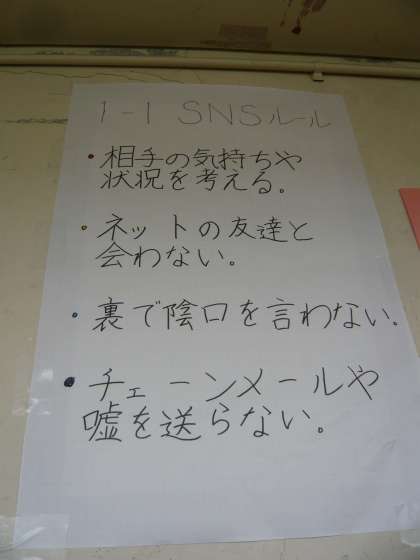 1-1 SNSルール
・相手の気持ちや
状況を考える。
・ネットの友達と
会わない。
・裏で陰口を言わない。
・チェーンメールや
嘘を送らない。